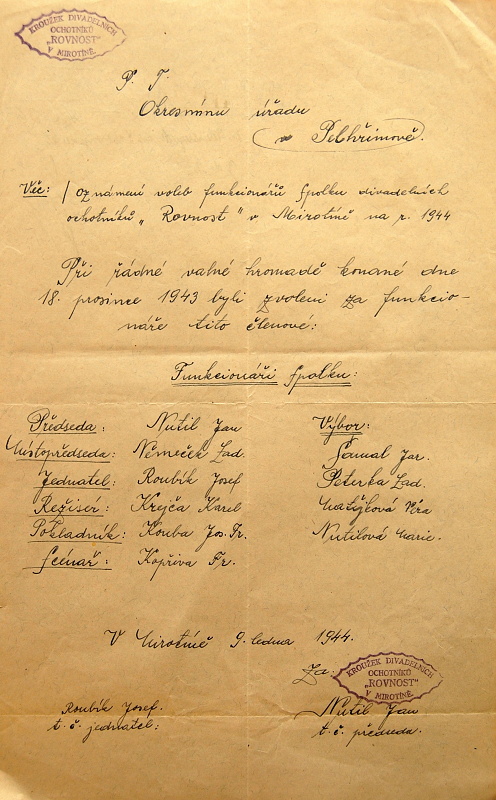 KROUŽEK DIVADELNÍCH
OCHOTNÍKŮ
„ROVNOST"
V MIROTÍNĚ.
P. T.
Okresnímu úřadu
v Pelhřimově.
Věc: / Oznámení voleb funkcionářů spolku divadelních
ochotníků „Rovnost" v Mirotíně na r. 1944
Při řádné valné hromadě konané dne
18. prosince 1943 byli zvoleni za funkcio-
náře tito členové:
Funkcionáři spolku:
Předseda: Nutil Jan
Místopředseda: Němeček Lad.
Jednatel: Roubík Josef
Režisér: Krejča Karel
Pokladník: Kouba Jos. Fr.
Scénař: Kopřiva Fr.
Výbor:
Samal Jar.
Peterka Lad.
Matějková Věra
Nutilová Marie.
V Mirotíně 9. ledna 1944.
Za:
KROUŽEK DIVADELNÍCH
OCHOTNÍKŮ
„ROVNOST"
V MIROTÍNĚ.
Roubík Josef.
t. č. jednatel:
Nutil Jan
t. č. předseda.